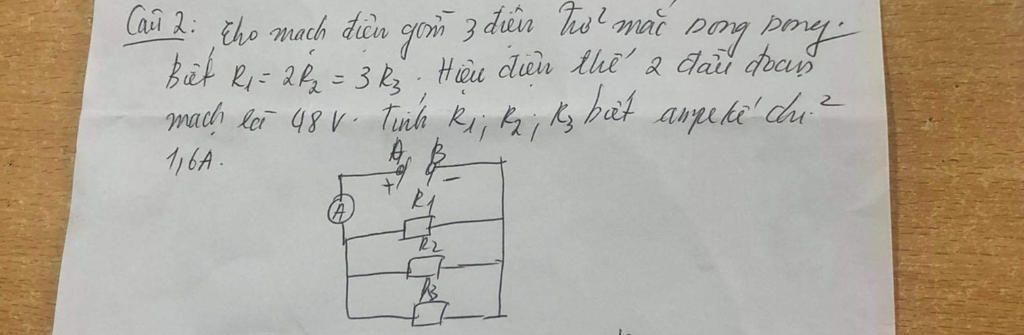 Câu 2: Cho mạch điện gồm 3 điện trở mắc song song.
Biết R1 = 2R2 = 3R3. Hiệu điện thế 2 đầu đoạn
mạch là 48 V. Tính R1; R2; R3 biết ampe kế chỉ
1,6A.
A B
+ -
R1
A
R2
R3